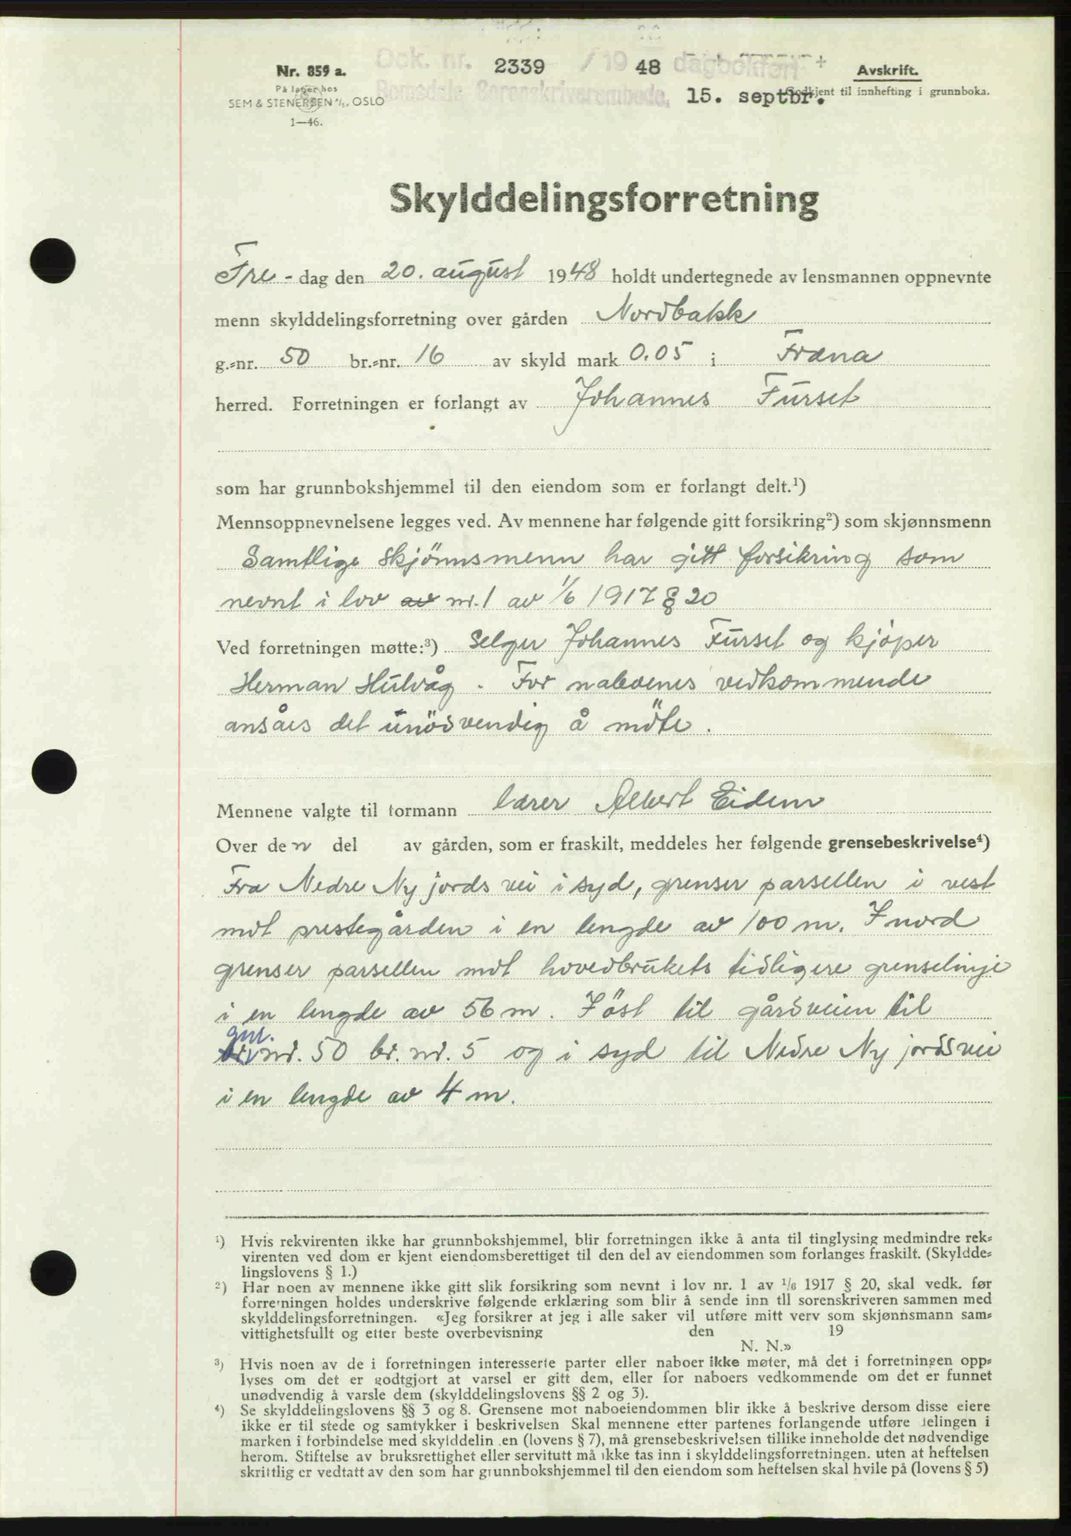 Dok. nr. 2339 / 19 48 dagbokført
Romsdals Sorenskriverembede, 15. septbr.
Nr. 859 a.
På lager hos
SEM & STENERSEN A/S, OSLO
1—46.
Avskrift.
Godkjent til innhefting i grunnboka.
Skylddelingsforretning
Fre - dag den 20. august 1948 holdt undertegnede av lensmannen oppnevnte
menn skylddelingsforretning over gården Nordbakk
g.=nr. 50 br.=nr. 16 av skyld mark 0.05 i Fræna
herred. Forretningen er forlangt av Johannes Furset
som har grunnbokshjemmel til den eiendom som er forlangt delt.¹)
Mennsoppnevnelsene legges ved. Av mennene har følgende gitt forsikring²) som skjønnsmenn
Samtlige skjönnsmenn har gitt forsikring som
nevnt i lov av nr. 1 av 1/6 1917 § 20
Ved forretningen møtte:³) Selger Johannes Furset og kjöper
Herman Hulvåg. For naboenes vedkommende
ansåes det unödvendig å möte.
Mennene valgte til formann lærer Albert Eidem
Over den del av gården, som er fraskilt, meddeles her følgende grensebeskrivelse⁴)
Fra Nedre Nyjords vei i syd, grenser parsellen i vest
mot prestegården i en lengde av 100 m. I nord
grenser parsellen mot hovedbrukets tidligere grenselinje
i en lengde av 56 m. I öst til gårdsveien til
gnr.
nr. 50 br. nr. 5 og i syd til Nedre Nyjordsvei
i en lengde av 4 m.
¹) Hvis rekvirenten ikke har grunnbokshjemmel, blir forretningen ikke å anta til tinglysing medmindre rek=
virenten ved dom er kjent eiendomsberettiget til den del av eiendommen som forlanges fraskilt. (Skyldde=
lingslovens § 1.)
²) Har noen av mennene ikke gitt slik forsikring som nevnt i lov nr. 1 av 1/6 1917 § 20, skal vedk. før
forretningen holdes underskrive følgende erklæring som blir å sende inn til sorenskriveren sammen med
skylddelingsforretningen. «Jeg forsikrer at jeg i alle saker vil utføre mitt verv som skjønnsmann sam=
vittighetsfullt og etter beste overbevisning den 19
N. N.»
³) Hvis noen av de i forretningen interesserte parter eller naboer ikke møter, må det i forretningen opp=
lyses om det er godtgjort at varsel er gitt dem, eller for naboers vedkommende om det er funnet
unødvendig å varsle dem (skylddelingslovens §§ 2 og 3).
⁴) Se skylddelingslovens §§ 3 og 8. Grensene mot naboeiendommen blir ikke å beskrive dersom disse eiere
ikke er til stede og samtykker i beskrivelsen Skal mennene etter partenes forlangende utføre delingen i
marken i forbindelse med skylddelingen (lovens § 7), må grensebeskrivelsen tillike inneholde det nødvendige
herom. Stiftelse av bruksrettighet eller servitutt må ikke tas inn i skylddelingsforretningen. uten at heftelsen
skriftlig er vedtatt av den som har grunnbokshjemmel til den eiendom som heftelsen skal hvile på (lovens § 5)